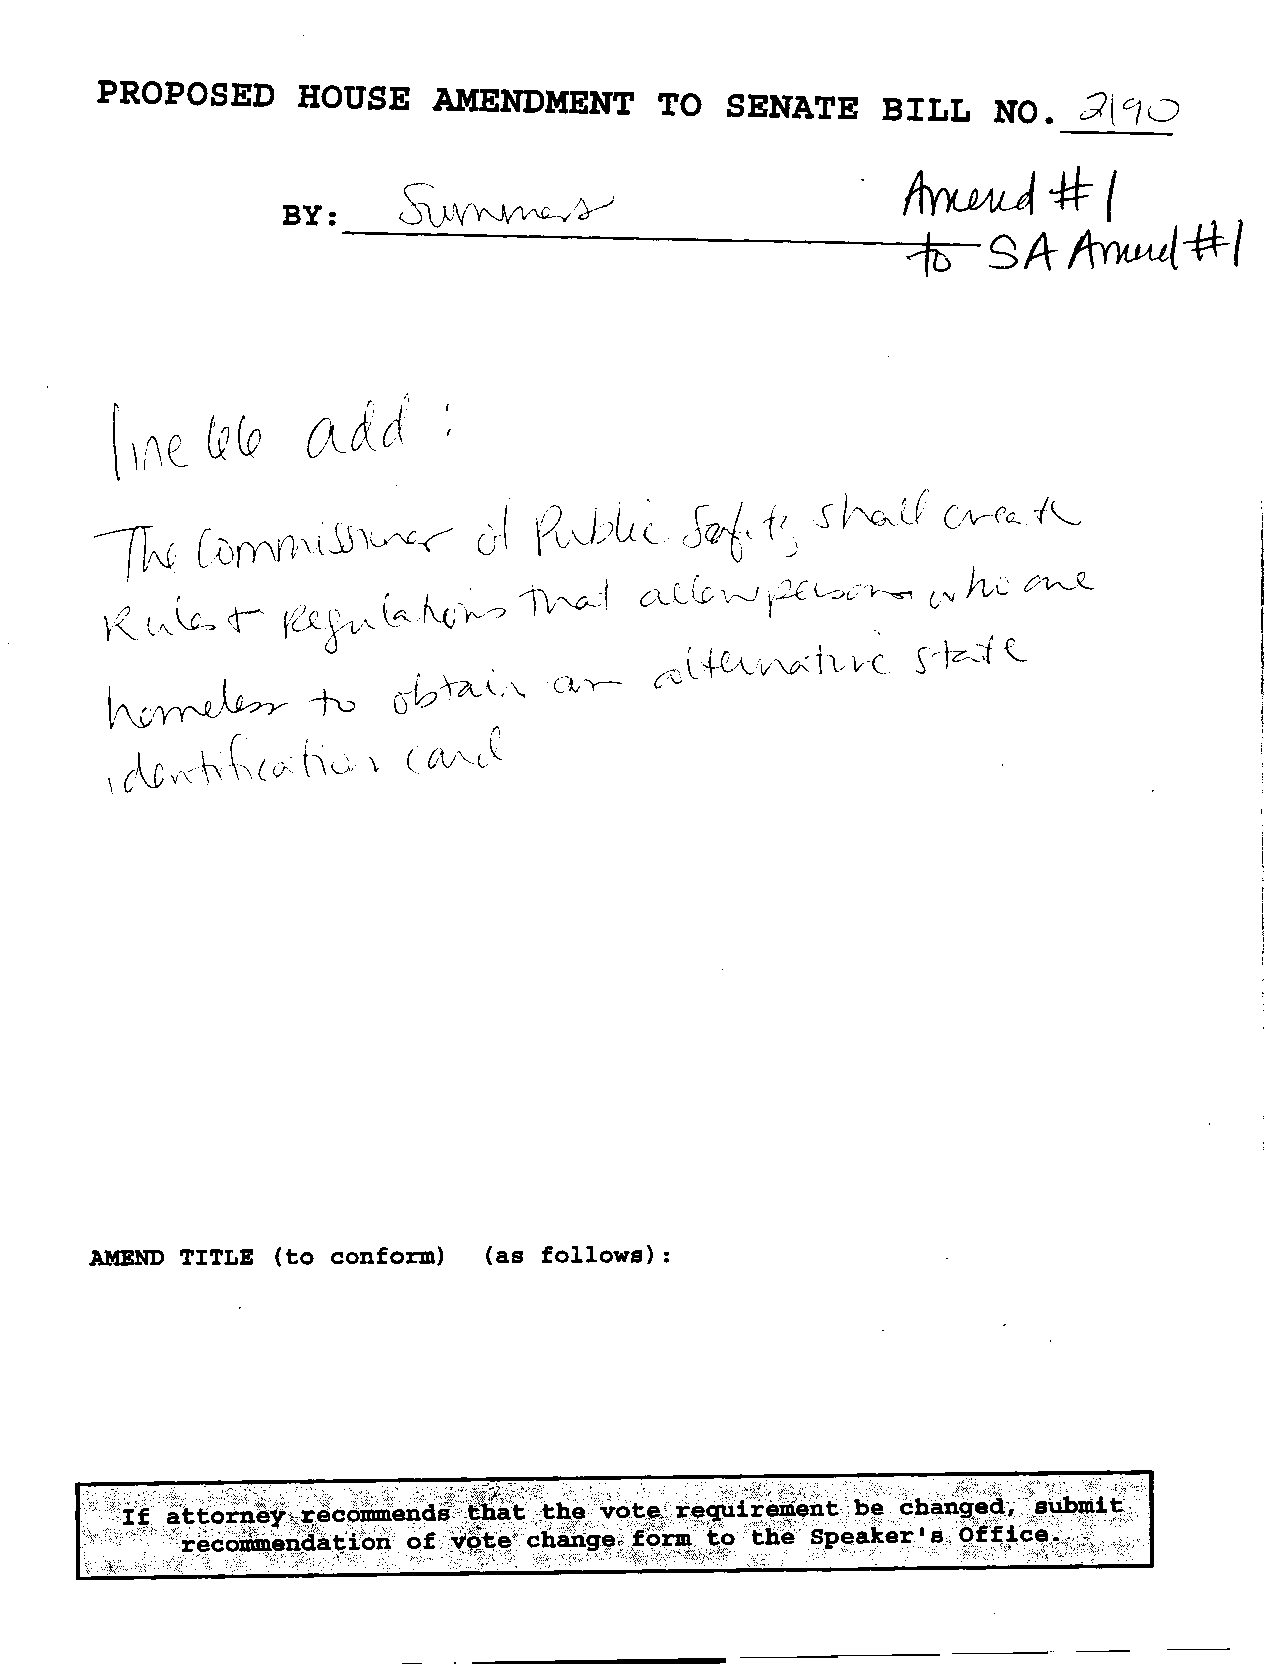 PROPOSED HOUSE AMENDMENT TO SENATE BILL NO. 2190
BY: Summers
Amend #1
to SA Amend #1
line 66 add :
The Commissioner of Public Safety shall create
Rules + Regulations that allow persons who are
homeless to obtain an alternative state
identification card
AMEND TITLE (to conform) (as follows):
If attorney recommends that the vote requirement be changed, submit
recommendation of vote change form to the Speaker's Office.